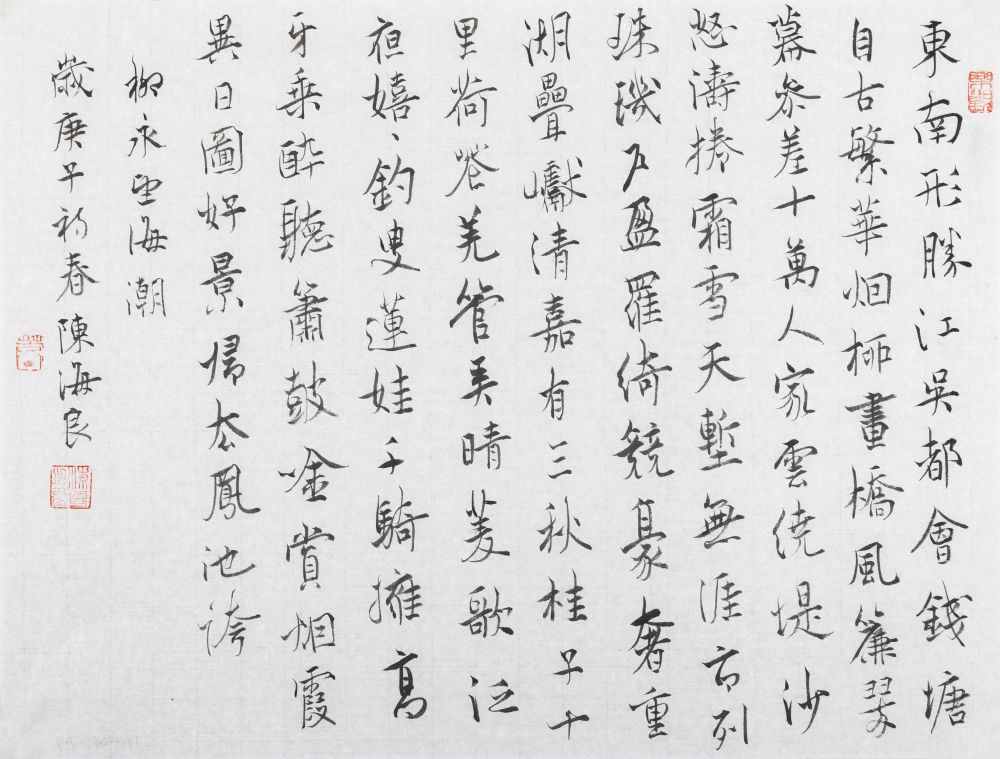 東南形勝江吳都會錢塘
自古繁華烟柳畫橋風簾翠
幕參差十萬人家雲繞堤沙
怒濤捲霜雪天塹無涯市列
珠璣户盈羅綺競豪奢重
湖疊巘清嘉有三秋桂子十
里荷花羌管弄晴菱歌泛
夜嬉〻釣叟蓮娃千騎擁高
牙乘醉聽簫鼓唫賞烟霞
異日圖好景歸去鳳池誇
柳永望海潮
歲庚子初春陳海良